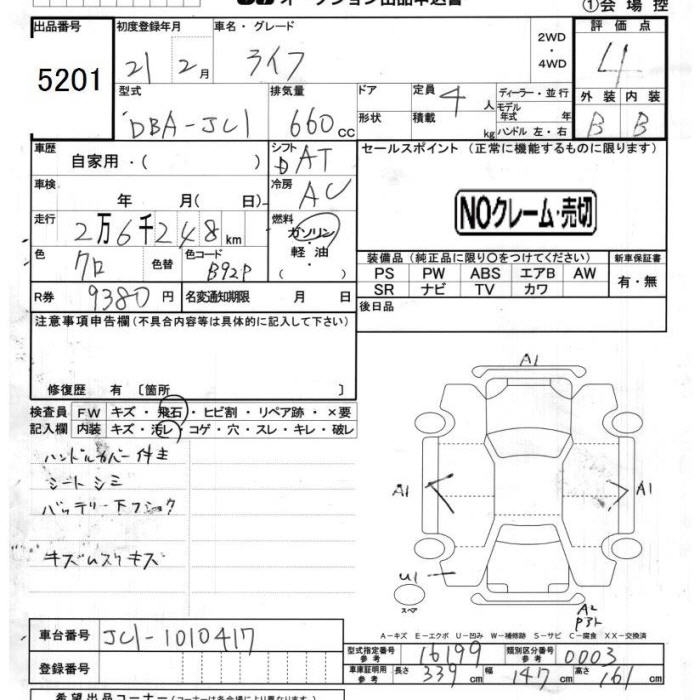 オークション出品申込書
①会場控
出品番号 5201
初度登録年月 21 2月
車名・グレード ライフ
2WD・4WD
評価点 4
外装 B 内装 B
型式 DBA-JC1
排気量 660cc
ドア
形状
定員 4人
積載 kg
ディーラー・並行
モデル年式 年
ハンドル 左・右
車歴 自家用・( )
シフト DAT
セールスポイント (正常に機能するものに限ります)
車検 年 月( 日)
冷房 AC
NOクレーム・売切
走行 2万6千248km
燃料 ガソリン・軽油・( )
色 クロ 色替
色コード B92P
装備品 (純正品に限り○をつけてください)
新車保証書 有・無
PS PW ABS エアB AW
SR ナビ TV カワ
R券 9380円
名変通知期限 月 日
後日品
注意事項申告欄 (不具合内容等は具体的に記入して下さい)
修復歴 有 〔箇所 〕
検査員記入欄
FW キズ・飛石・ヒビ割・リペア跡・×要
内装 キズ・汚レ・コゲ・穴・スレ・キレ・破レ
ハンドルカバー付キ
シートシミ
バッテリー下フショク
キズ ウスクキズ
A1
A1
A1
U1
スペア
A2
A-キズ E-エクボ U-凹み W-補修跡 S-サビ C-腐食 XX-交換済
車台番号 JC1-1010417
登録番号
型式指定番号 参考 16199
類別区分番号 参考 0003
車庫証明用 参考 長さ 339cm 幅 147cm 高さ 161cm
希望出品コーナー (コーナー名は各会場により異なります)